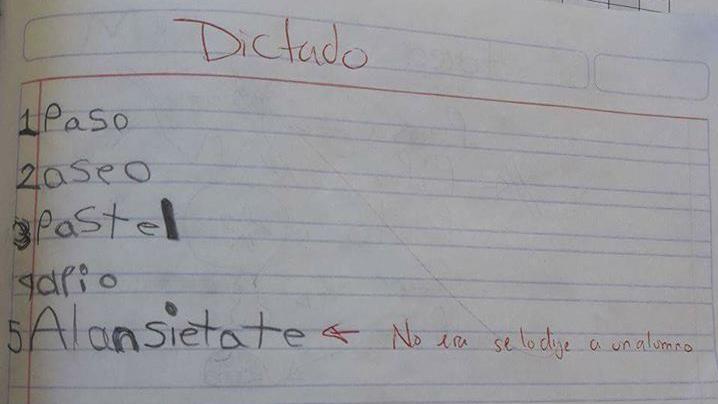 Dictado
1 Paso
2 aseo
3 Pastel
4 apio
5 Alansietate ← No era se lo dije a un alumno